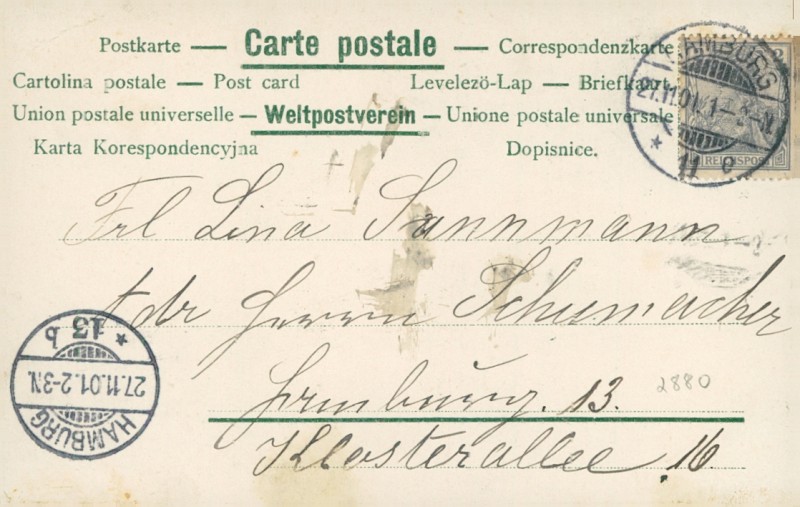 Postkarte — Carte postale — Correspondenzkarte
Cartolina postale — Post card Levelezö-Lap — Briefkaart
Union postale universelle — Weltpostverein — Unione postale universale
Karta Korespondencyjna Dopisnice.
HAMBURG
27.11.01.1-2N.
* 11 c
REICHSPOST
Frl Lina Sannmann
adr Herrn Schumacher
Hamburg. 13.
Klosterallee 16
2880
* 13 b
27.11.01.2-3N.
HAMBURG